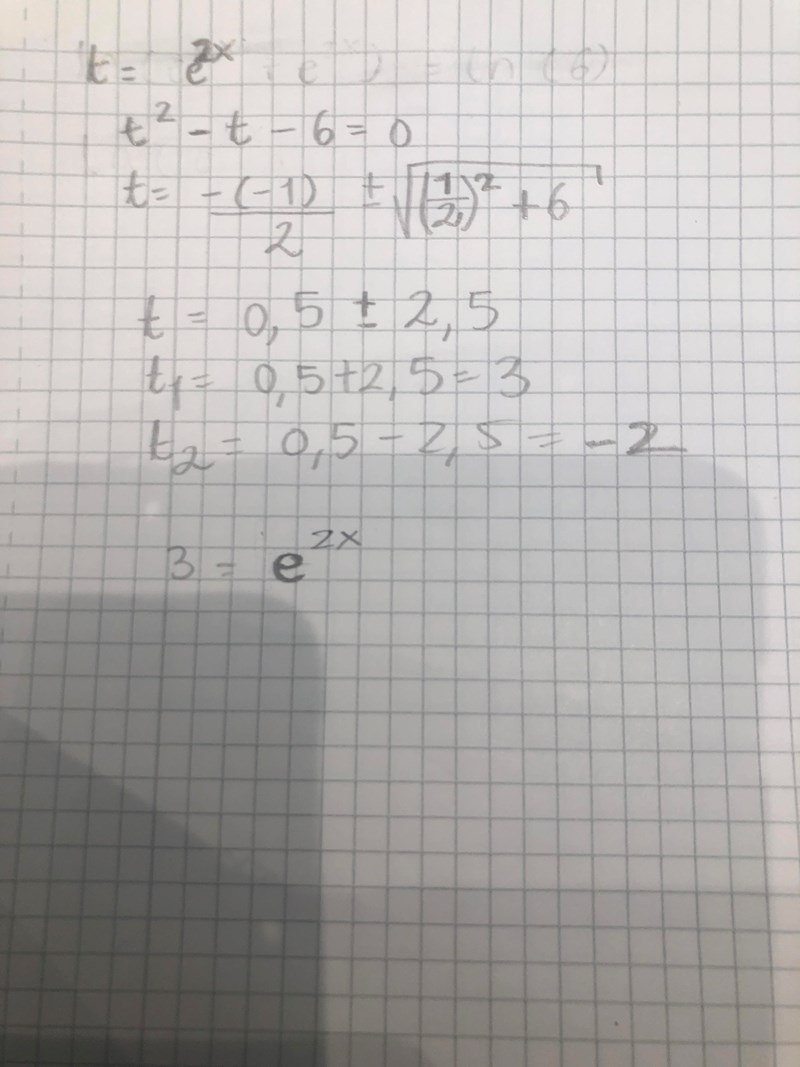 t = e^2x
t² - t - 6 = 0
t = -(-1)/2 ± √((1/2)² + 6)
t = 0,5 ± 2,5
t₁ = 0,5+2,5 = 3
t₂ = 0,5 - 2,5 = -2
3 = e^2x